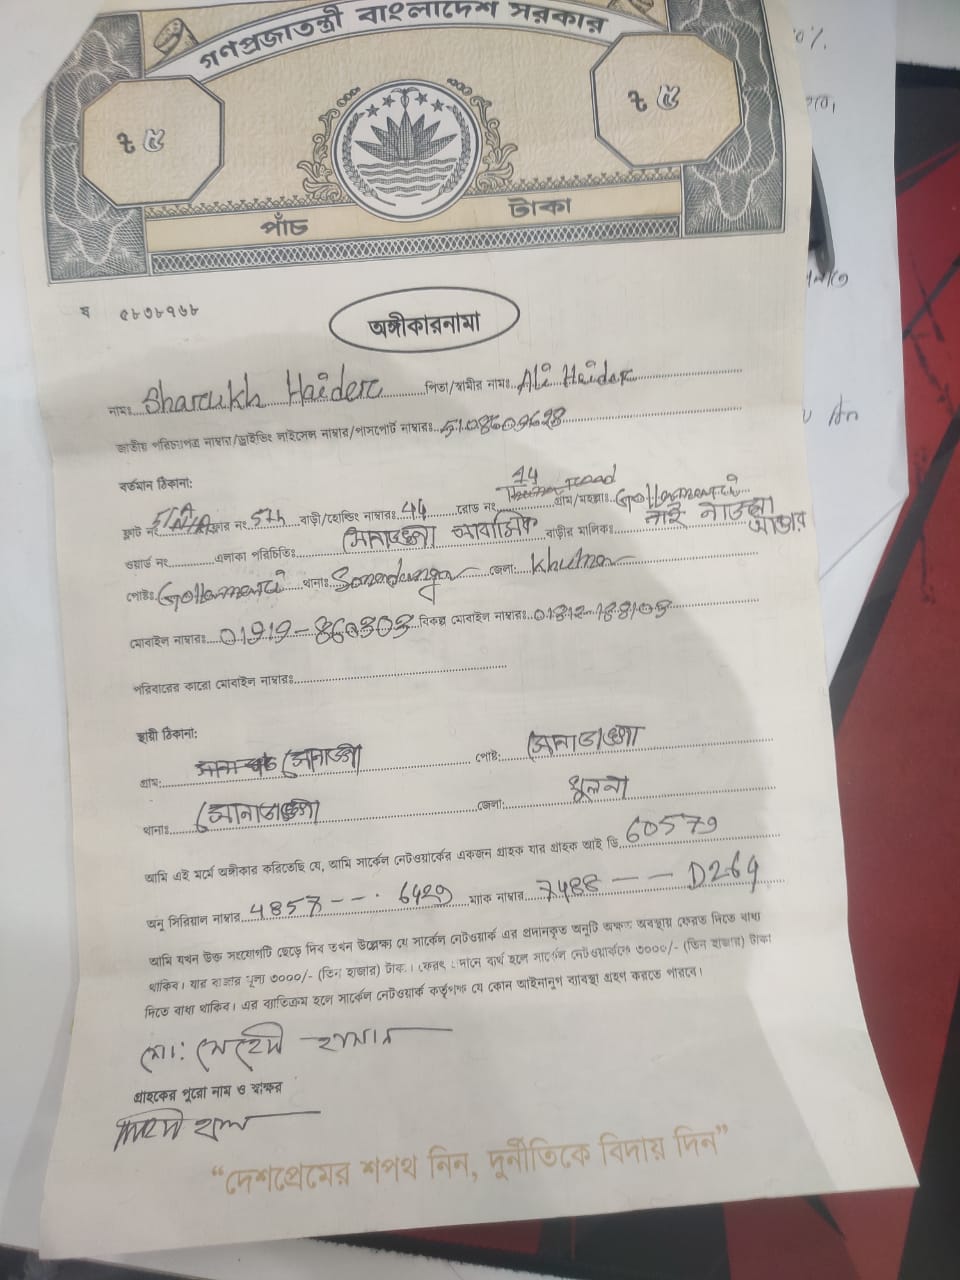 গণপ্রজাতন্ত্রী বাংলাদেশ সরকার
৳ ৫ ৳ ৫
পাঁচ টাকা
ষ ৫৮৩৮৭৬৮
অঙ্গীকারনামা
নামঃ Sharukh Haider পিতা/স্বামীর নামঃ Ali Haider
জাতীয় পরিচয়পত্র নাম্বার/ড্রাইভিং লাইসেন্স নাম্বার/পাসপোর্ট নাম্বারঃ
বর্তমান ঠিকানা:
ফ্লাট নং ফ্লোর নং 5th বাড়ী/হোল্ডিং নাম্বারঃ 44 রোড নং 14 গ্রাম/মহল্লাঃ Gollamari
ওয়ার্ড নং এলাকা পরিচিতিঃ সোনাডাঙ্গা আবাসিক বাড়ীর মালিকঃ
পোষ্টঃ Gollamari থানাঃ Sonadanga জেলা: Khulna
মোবাইল নাম্বারঃ 01919-860303 বিকল্প মোবাইল নাম্বারঃ
পরিবারের কারো মোবাইল নাম্বারঃ
স্থায়ী ঠিকানা:
গ্রাম: সোনাডাঙ্গা পোষ্ট: সোনাডাঙ্গা
থানাঃ সোনাডাঙ্গা জেলা: খুলনা
আমি এই মর্মে অঙ্গীকার করিতেছি যে, আমি সার্কেল নেটওয়ার্কের একজন গ্রাহক যার গ্রাহক আই ডি 60579
অনু সিরিয়াল নাম্বার 4857 -- 6429 ম্যাক নাম্বার 7488 -- D264
আমি যখন উক্ত সংযোগটি ছেড়ে দিব তখন উল্লেক্ষ্য যে সার্কেল নেটওয়ার্ক এর প্রদানকৃত অনুটি অক্ষত অবস্থায় ফেরত দিতে বাধ্য
থাকিব। যার বাজার মূল্য ৩০০০/- (তিন হাজার) টাকা। ফেরৎ দিতে ব্যর্থ হলে সার্কেল নেটওয়ার্ককে ৩০০০/- (তিন হাজার) টাকা
দিতে বাধ্য থাকিব। এর ব্যতিক্রম হলে সার্কেল নেটওয়ার্ক কর্তৃপক্ষ যে কোন আইনানুগ ব্যাবস্থা গ্রহণ করতে পারবে।
মো: মেহেদী হাসান
গ্রাহকের পুরো নাম ও স্বাক্ষর
“দেশপ্রেমের শপথ নিন, দুর্নীতিকে বিদায় দিন”